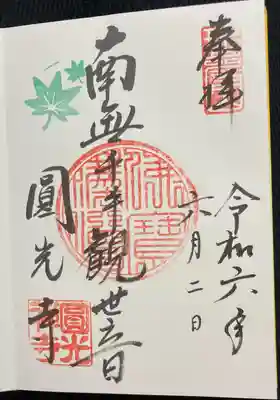 奉拝
令和六年
六月二日
南無千手観世音
圓光寺
佛法僧寶
圓光寺